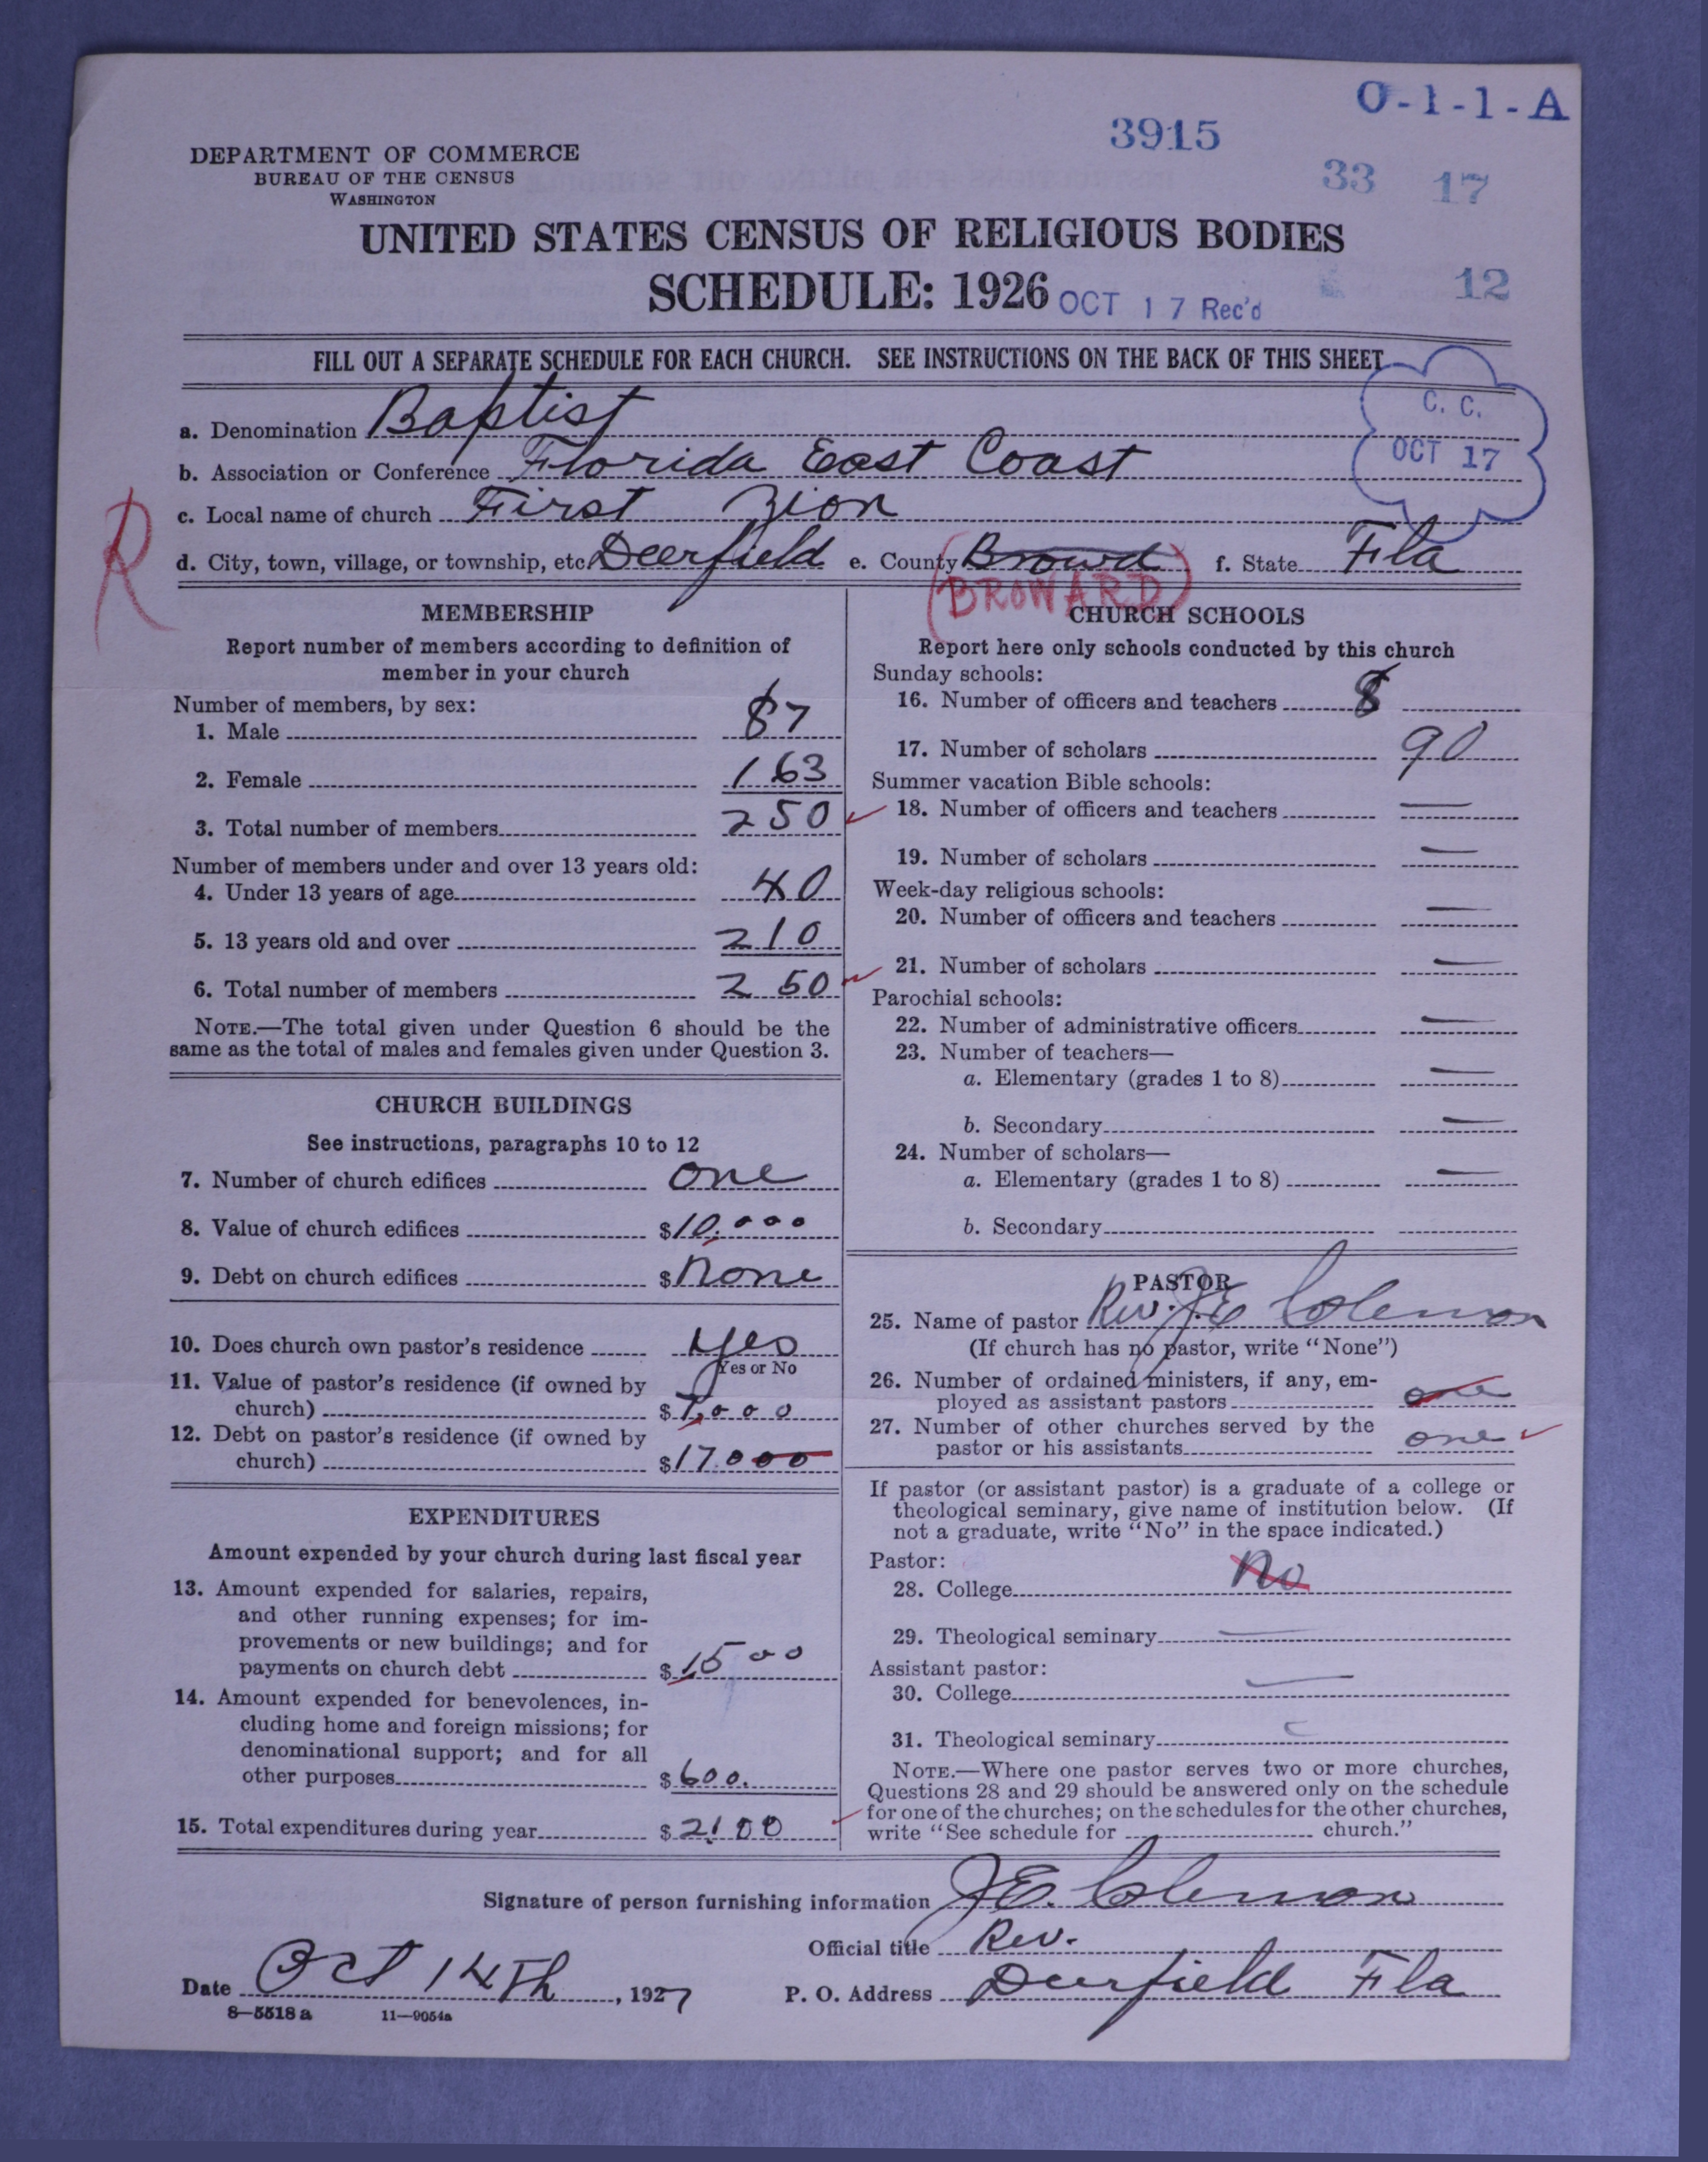 O-1-1-A
3915
33 17
DEPARTMENT OF COMMERCE
BUREAU OF THE CENSUS
WASHINGTON
UNITED STATES CENSUS OF RELIGIOUS BODIES
SCHEDULE: 1926 OCT 17 Rec'd
12
FILL OUT A SEPARATE SCHEDULE FOR EACH CHURCH. SEE INSTRUCTIONS ON THE BACK OF THIS SHEET
C. C.
OCT 17
a. Denomination Baptist
b. Association or Conference Florida East Coast
c. Local name of church First Zion
R
d. City, town, village, or township, etc. Deerfield e. County Browd f. State Fla
(BROWARD)
MEMBERSHIP
Report number of members according to definition of
member in your church
Number of members, by sex:
1. Male 87
2. Female 163
3. Total number of members 250
Number of members under and over 13 years old:
4. Under 13 years of age 40
5. 13 years old and over 210
6. Total number of members 250
NOTE.—The total given under Question 6 should be the
same as the total of males and females given under Question 3.
CHURCH BUILDINGS
See instructions, paragraphs 10 to 12
7. Number of church edifices one
8. Value of church edifices $10.000
9. Debt on church edifices $ none
10. Does church own pastor's residence yes
Yes or No
11. Value of pastor's residence (if owned by
church) $7,000
12. Debt on pastor's residence (if owned by
church) $17.000
EXPENDITURES
Amount expended by your church during last fiscal year
13. Amount expended for salaries, repairs,
and other running expenses; for im-
provements or new buildings; and for
payments on church debt $1500
14. Amount expended for benevolences, in-
cluding home and foreign missions; for
denominational support; and for all
other purposes $600.
15. Total expenditures during year $2100
CHURCH SCHOOLS
Report here only schools conducted by this church
Sunday schools:
16. Number of officers and teachers 8
17. Number of scholars 90
Summer vacation Bible schools:
18. Number of officers and teachers —
19. Number of scholars —
Week-day religious schools:
20. Number of officers and teachers —
21. Number of scholars —
Parochial schools:
22. Number of administrative officers —
23. Number of teachers—
a. Elementary (grades 1 to 8) —
b. Secondary —
24. Number of scholars—
a. Elementary (grades 1 to 8) —
b. Secondary
PASTOR
25. Name of pastor Rev. J.E Coleman
(If church has no pastor, write "None")
26. Number of ordained ministers, if any, em-
ployed as assistant pastors one
27. Number of other churches served by the
pastor or his assistants one
If pastor (or assistant pastor) is a graduate of a college or
theological seminary, give name of institution below. (If
not a graduate, write "No" in the space indicated.)
Pastor:
28. College No
29. Theological seminary —
Assistant pastor:
30. College —
31. Theological seminary
NOTE.—Where one pastor serves two or more churches,
Questions 28 and 29 should be answered only on the schedule
for one of the churches; on the schedules for the other churches,
write "See schedule for church."
Signature of person furnishing information J.E. Coleman
Official title Rev.
Date Oct 14th, 1927 P. O. Address Deerfield Fla
8—5518a 11—9054a